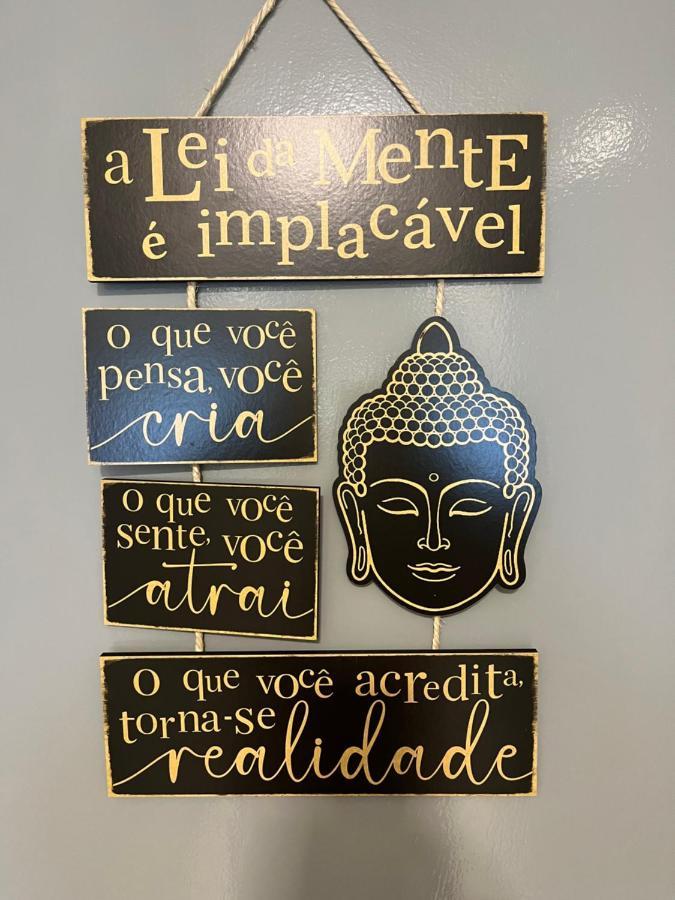 a Lei da MentE
é implacável
o que você
pensa, você
cria
O que você
sente, você
atrai
O que você acredita,
torna-se
realidade